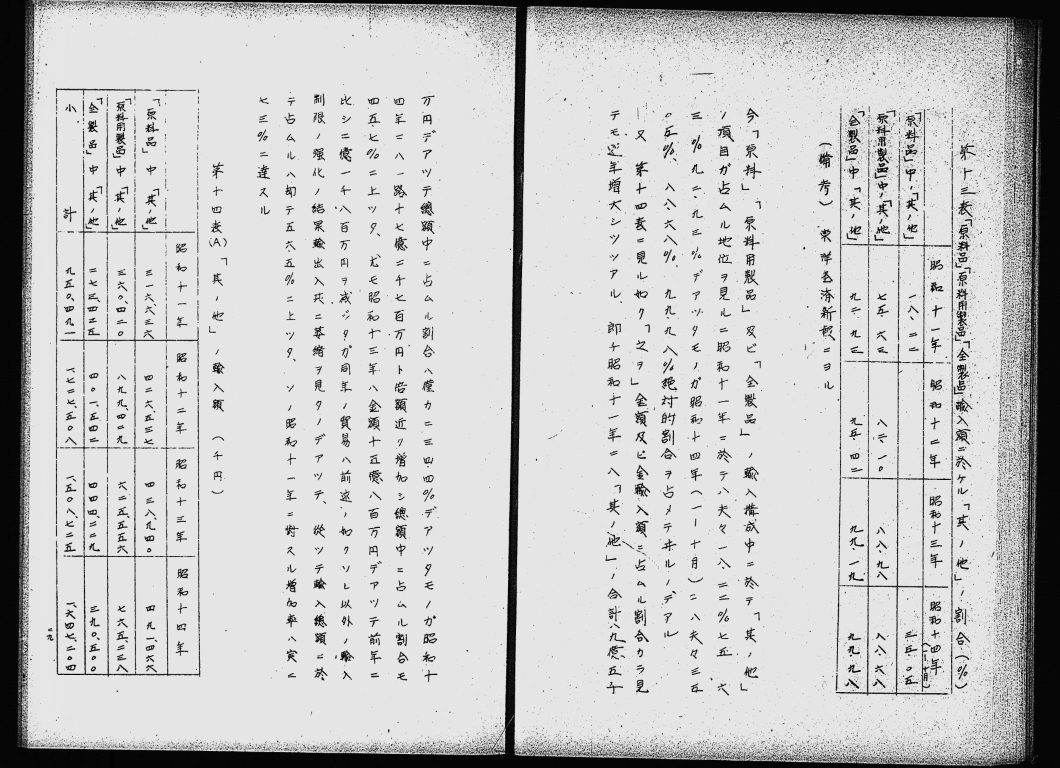 第十三表「原料品」「原料用製品」「全製品」輸入額ニ於ケル「其ノ他」ノ割合(%)
昭和十一年 昭和十二年 昭和十三年 昭和十四年(一—十月)
「原料品」中「其ノ他」 一八・二二 三五・〇五
「原料用製品」中「其ノ他」 七五・六三 八二・一〇 八八・九八 八八・六八
「全製品」中「其ノ他」 九二・九三 九五・四二 九九・一九 九九・九八
(備考) 東洋経済新報ニヨル
今「原料」「原料用製品」及ビ「全製品」ノ輸入構成中ニ於テ「其ノ他」
ノ項目ガ占ムル地位ヲ見ルニ昭和十一年ニ於テハ夫々一八・二二%七五・六
三%九二・九三%デアツタモノガ昭和十四年(一—十月)ニハ夫々三五
・〇五%、八八・六八%、九九・九八%絶対的割合ヲ占メテヰルノデアル
又第十四表ニ見ル如ク「之ヲ」金額及ビ全輸入額ニ占ムル割合カラ見
テモ近年増大シツツアル、即チ昭和十一年ニハ「其ノ他」ノ合計九億五千
万円デアツテ總額中ニ占ムル割合ハ僅カニ三四・四%デアツタモノガ昭和十
四年ニハ一躍十七億二千七百万円ト倍額近ク増加シ總額中ニ占ムル割合モ
四五・七%ニ上ツタ、尤モ昭和十三年ハ金額十五億八百万円デアツテ前年ニ
比シ二億一千八百万円ヲ減ジタガ同年ノ貿易ハ前述ノ如クソレ以外ノ輸入
制限ノ強化ノ結果輸出入共ニ萎縮ヲ見タノデアツテ、從ツテ輸入總額ニ於
テ占ムルハ却テ五六・五%ニ上ツタ、ソノ昭和十一年ニ対スル増加率ハ実ニ
七三%ニ達スル
第十四表(A)「其ノ他」ノ輸入額 (千円)
昭和十一年 昭和十二年 昭和十三年 昭和十四年
「原料品」中「其ノ他」 三一六、六三六 四二六、五三七 四三八、九四〇 四九一、四六六
「原料用製品」中「其ノ他」 三六〇、四二〇 八九九、四二九 六二五、五五六 七六五、二三八
「全製品」中「其ノ他」 二七三、四三五 四〇一、五四二 四四四、二二九 三九〇、五〇〇
小計 九五〇、四九一 一、七二七、五〇八 一、五〇八、七二五 一、六四七、二〇四
二九